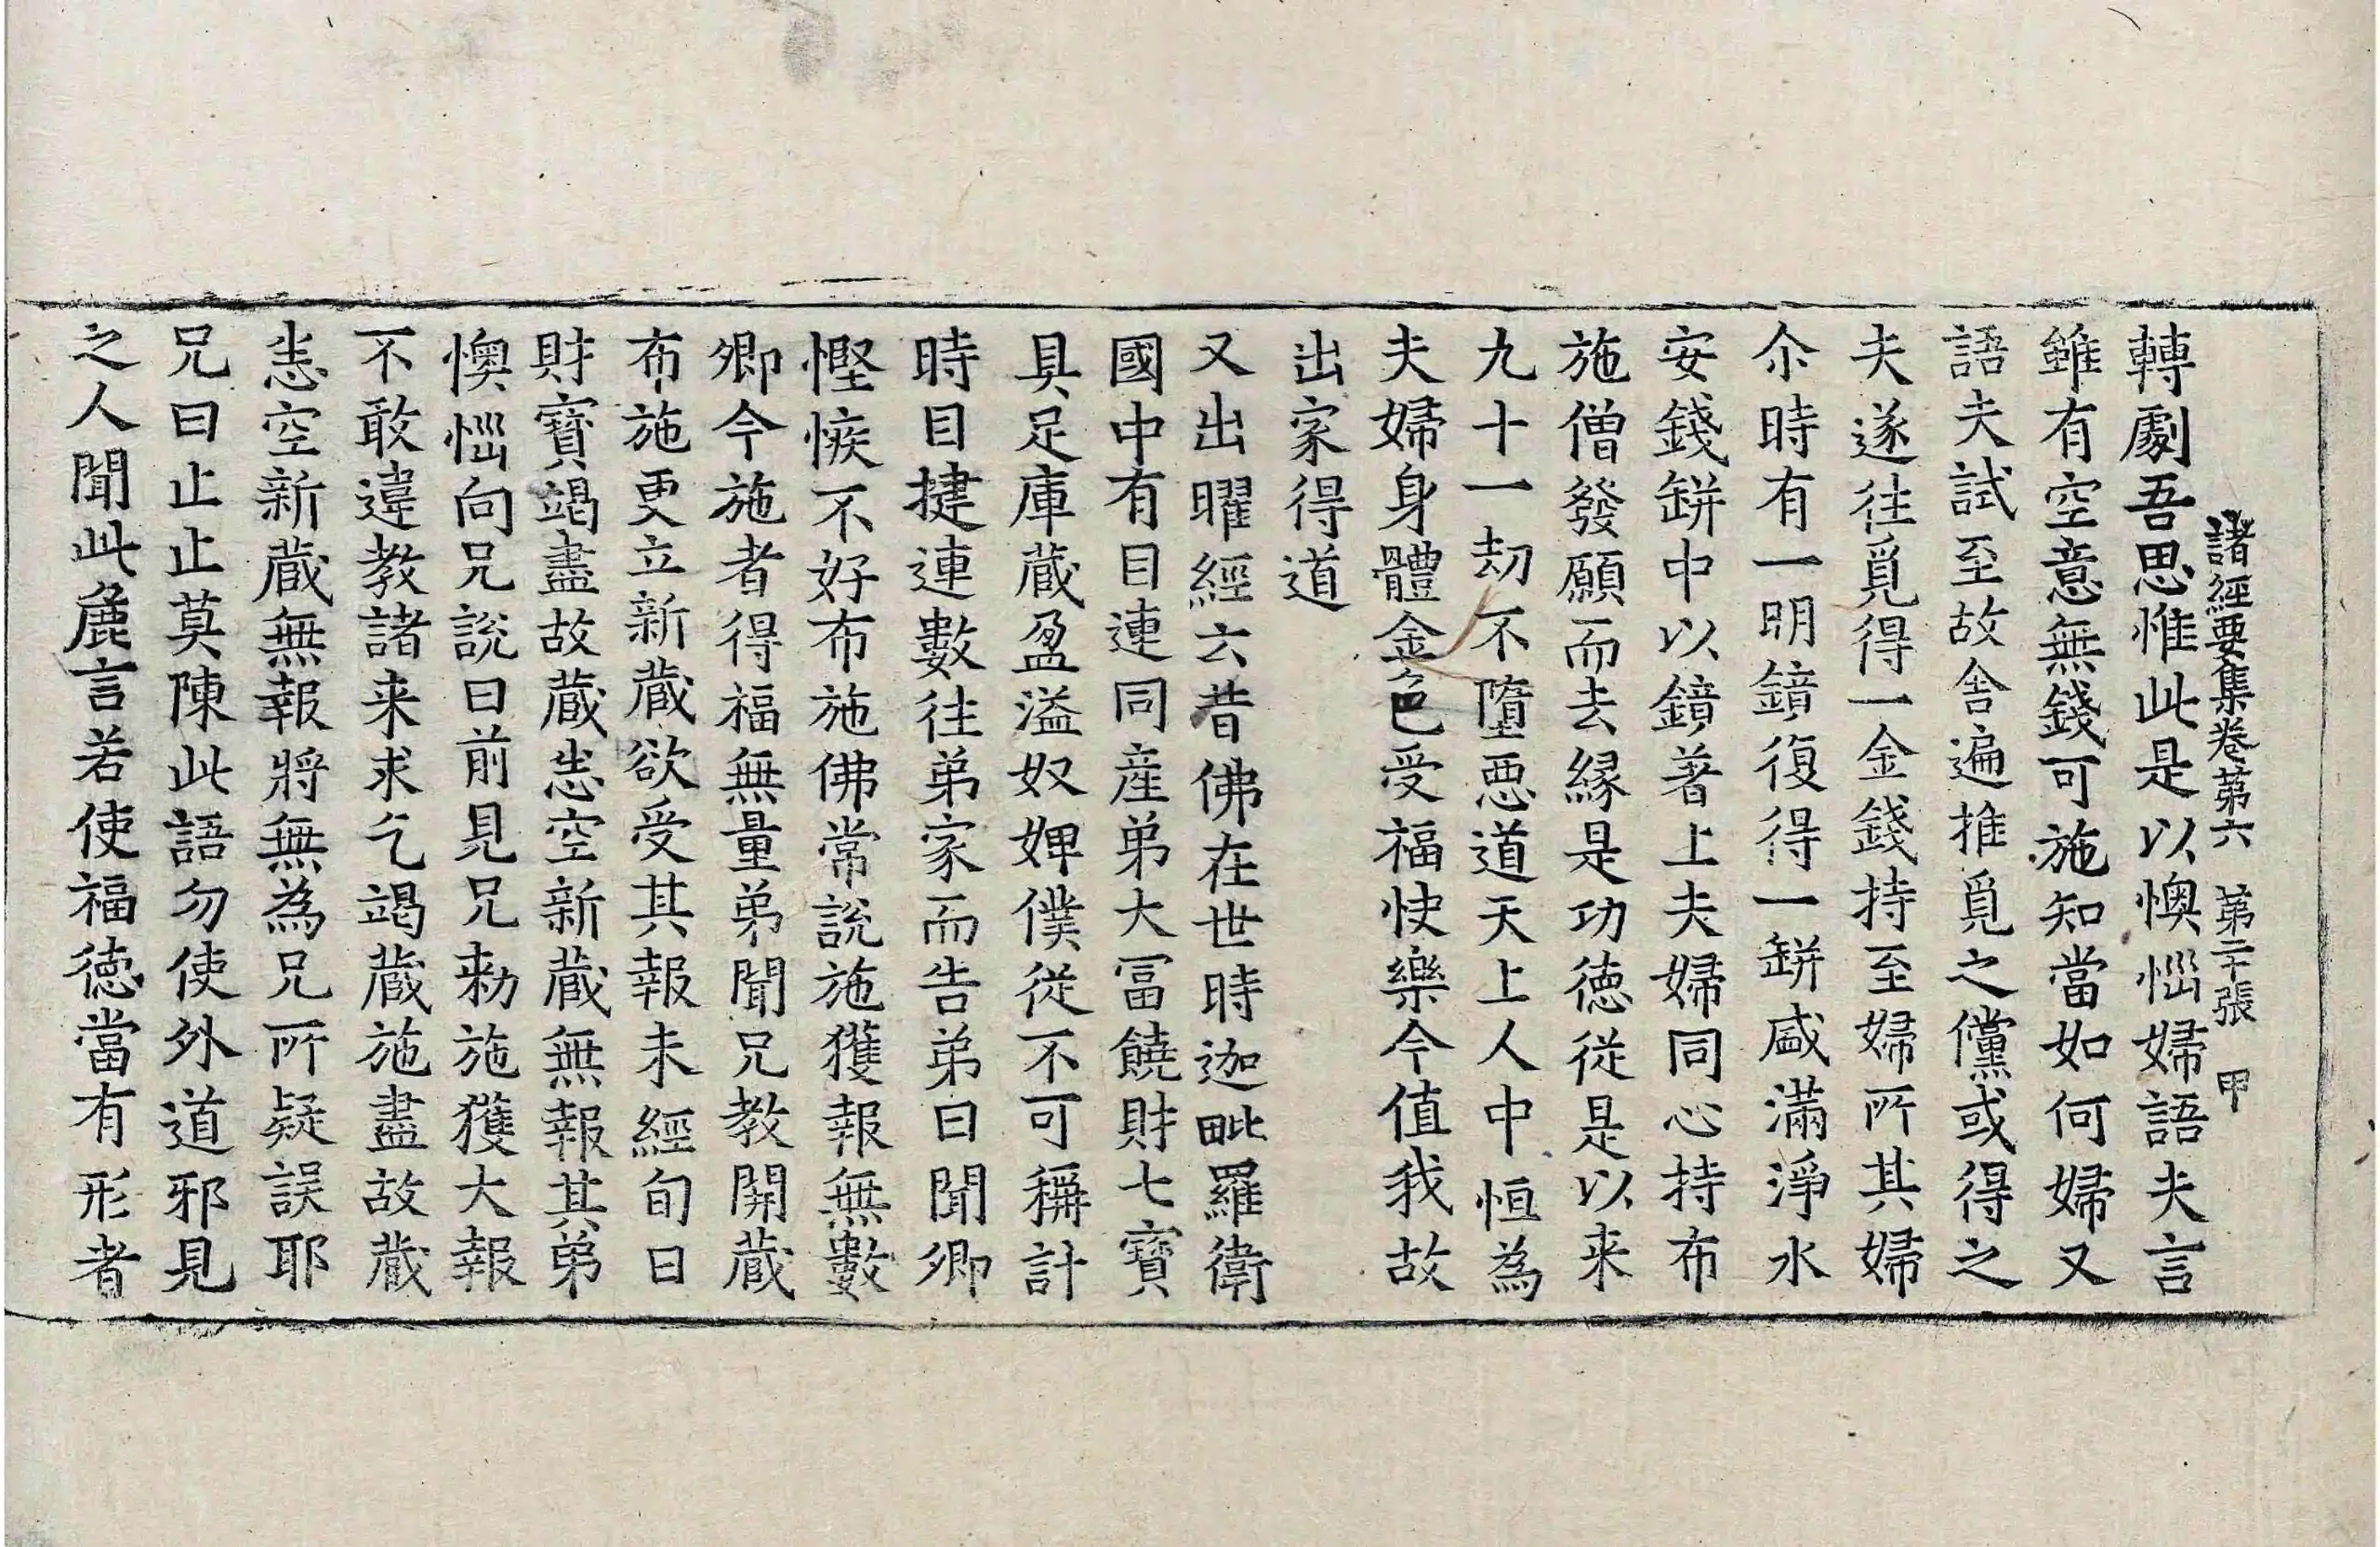 諸經要集卷第六　第二十張　甲
轉劇吾思惟此是以懊惱婦語夫言
雖有空意無錢可施知當如何婦又
語夫試至故舎遍推覓之儻或得之
夫遂往覓得一金錢持至婦所其婦
尒時有一明鏡復得一缾盛滿淨水
安錢缾中以鏡著上夫婦同心持布
施僧發願而去縁是功徳從是以来
九十一劫不墮惡道天上人中恒為
夫婦身體金色受福快樂今值我故
出家得道
又出曜經云昔佛在世時迦毗羅衛
國中有目連同産弟大冨饒財七寳
具足庫蔵盈溢奴婢僕從不可稱計
時目揵連數往弟家而告弟曰聞卿
慳悋不好布施佛常說施獲報無數
卿今施者得福無量弟聞兄教開蔵
布施更立新蔵欲受其報未經旬日
財寳竭盡故蔵悉空新蔵無報其弟
懊惱向兄說曰前見兄勑施獲大報
不敢違教諸来求乞竭蔵施盡故蔵
悉空新蔵無報將無為兄所疑誤耶
兄曰止止莫陳此語勿使外道邪見
之人聞此麁言若使福徳當有形者